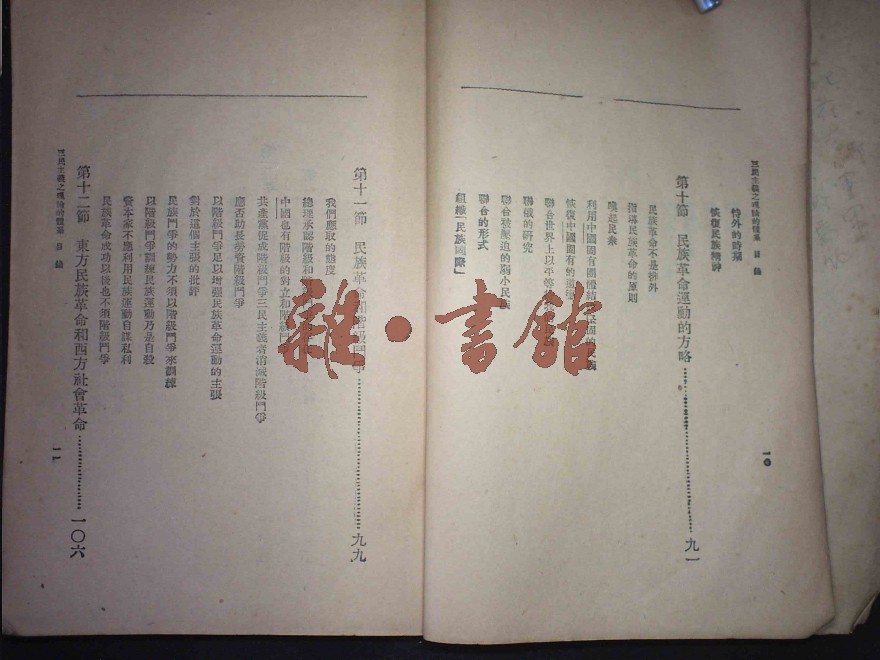 三民主義之理論的體系 目錄
特外的時期
恢復民族精神
第十節 民族革命運動的方略……九一
民族革命不是排外
指導民族革命的原則
喚起民衆
利用中國固有團體結
恢復中國固有的道
聯合世界上以平等
聯俄的研究
聯合被壓迫的弱小民族
聯合的形式
組織「民族國際」
一〇
第十一節 民族革命和階級鬥爭……九九
我們應取的態度
總理承認階級和
中國也有階級的對立和階級鬥
共產黨促成階級鬥爭三民主義者消滅階級鬥爭
應否助長勞資階級鬥爭
以階級鬥爭足以增强民族革命運動的主張
對於這個主張的批評
民族鬥爭的勢力不須以階級鬥爭來訓練
以階級鬥爭訓練民族運動乃是自殺
資本家不應利用民族運動自謀私利
民族革命成功以後也不須階級鬥爭
第十二節 東方民族革命和西方社會革命……一〇六
三民主義之理論的體系 目錄
一一
雜·書館